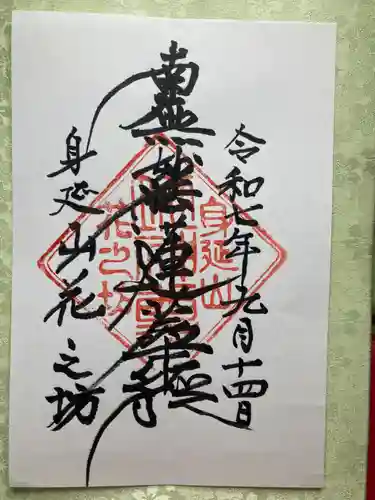 令和七年九月十四日
南無妙法蓮華經
身延山花之坊
身延山
花之坊